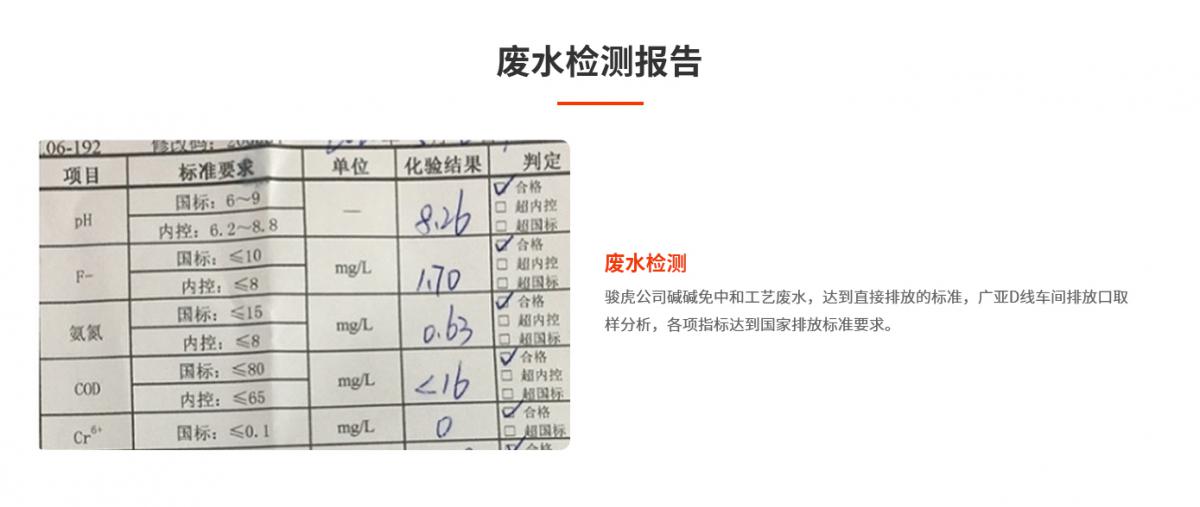 废水检测报告
.06-192 修改码:
项目 标准要求 单位 化验结果 判定
pH 国标:6~9 — 8.26 ☑合格
□ 超内控
内控:6.2~8.8 □ 超国标
F- 国标:≤10 mg/L 1.70 ☑合格
□ 超内控
内控:≤8 □ 超国标
氨氮 国标:≤15 mg/L 0.63 ☑合格
□ 超内控
内控:≤8 □ 超国标
COD 国标:≤80 mg/L <16 ☑合格
□ 超内控
内控:≤65 □ 超国标
Cr6+ 国标:≤0.1 mg/L 0 ☑合格
□ 超国标
合格
废水检测
骏虎公司碱碱免中和工艺废水,达到直接排放的标准,广亚D线车间排放口取
样分析,各项指标达到国家排放标准要求。